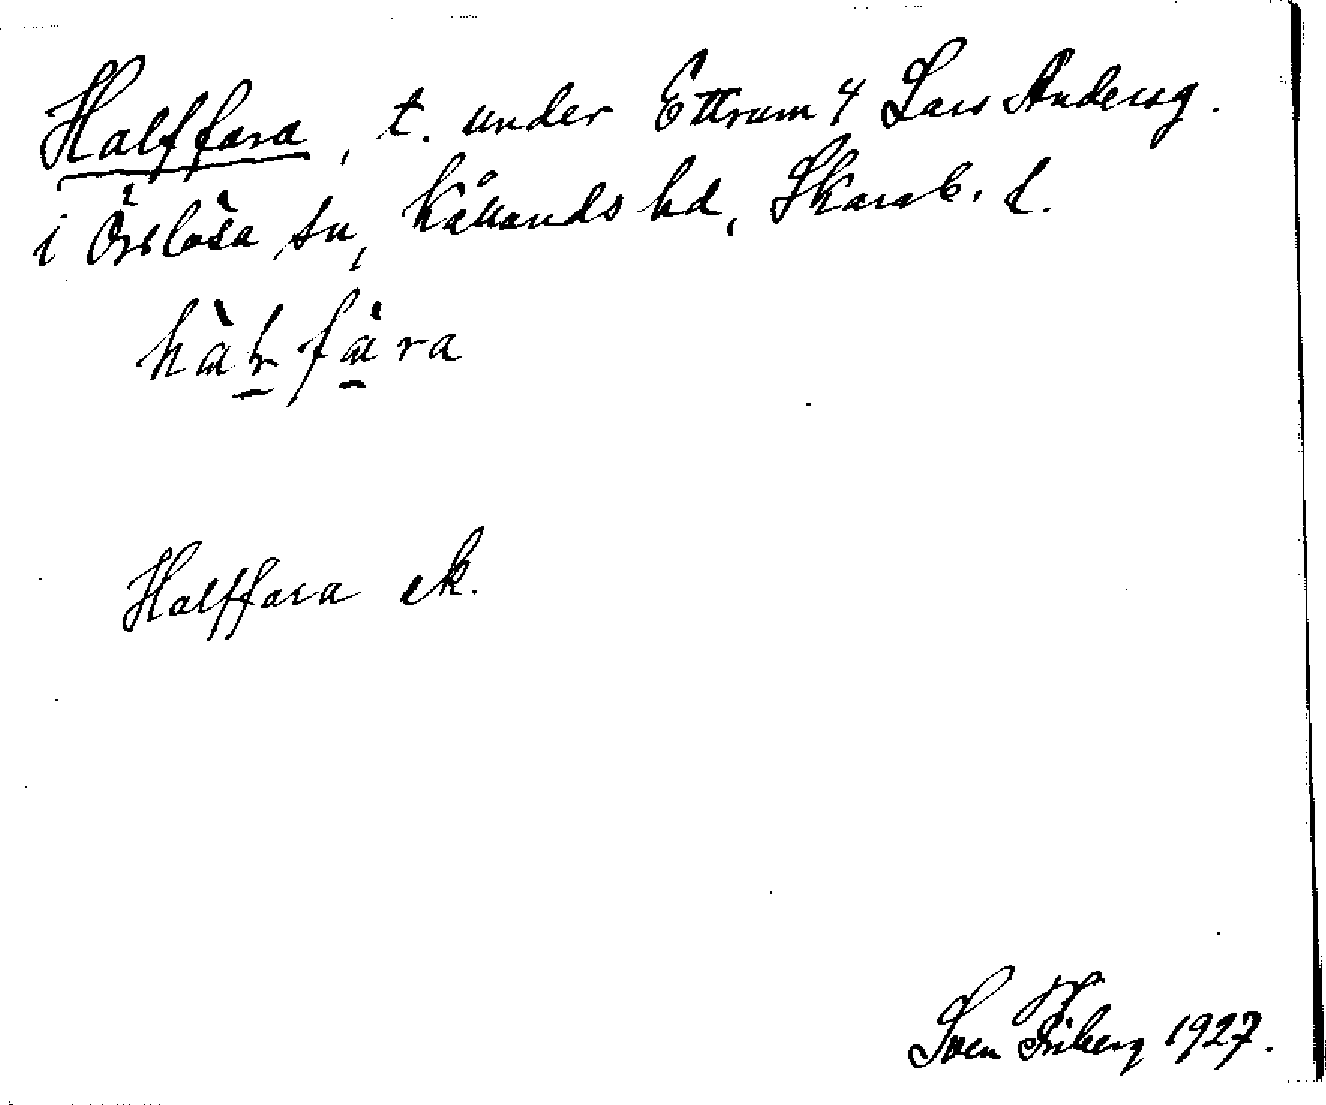 Halffara, t. under Ettrum 4 Lars Andersg.
i Örslösa sn, Kållands hd, Skarab. l.
Halffara ek.
Sven Friberg 1927.